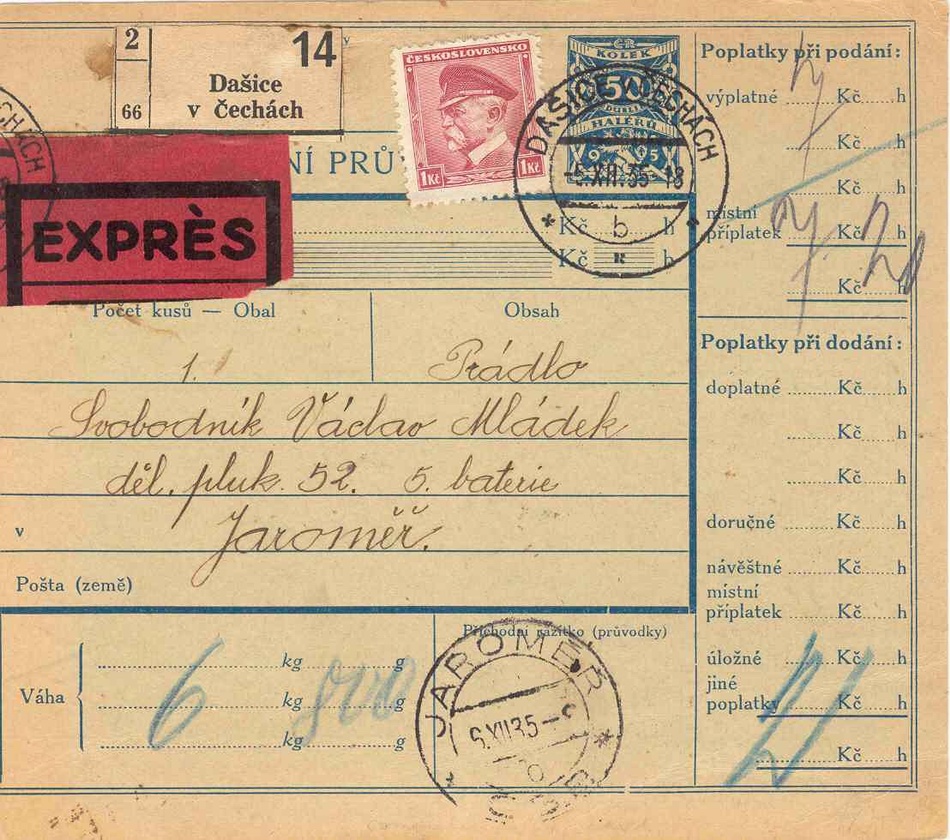 2
66
14
Dašice
v Čechách
ČECHÁCH
EXPRÈS
NÍ PRŮ
ČESKOSLOVENSKO
1Kč 1Kč
KOLEK
50
HALÉŘŮ
DAŠICE V ČECHÁCH
-5.XII.35-18
b
Kč h
Kč h
Počet kusů — Obal
Obsah
1.
Prádlo
Svobodník Václav Mládek
děl. pluk. 52. 5. baterie
v
Jaroměř.
Pošta (země)
Váha
kg g
kg g
kg g
6 800
Příchodní razítko (průvodky)
JAROMĚŘ
6.XII.35-
Poplatky při podání:
výplatné Kč h
Kč h
Kč h
místní
příplatek Kč h
Kč h
Poplatky při dodání:
doplatné Kč h
Kč h
Kč h
doručné Kč h
návěštné Kč h
místní
příplatek Kč h
úložné Kč h
jiné
poplatky Kč h
Kč h